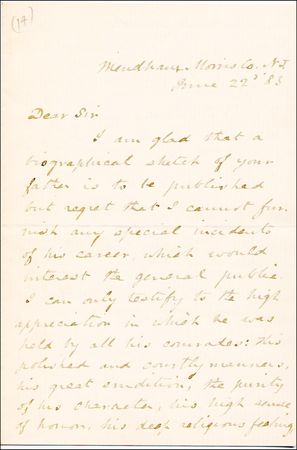 (14)
Mendham, Morris Co. N.J.
June 22d 83
Dear Sir
I am glad that a
biographical sketch of your
father is to be published
but regret that I cannot fur-
nish any special incidents
of his career, which would
interest the general public.
I can only testify to the high
appreciation in which he was
held by all his comrades: His
polished and courtly manners,
his great erudition, the purity
of his character, his high sense
of honor, his deep religious feeling